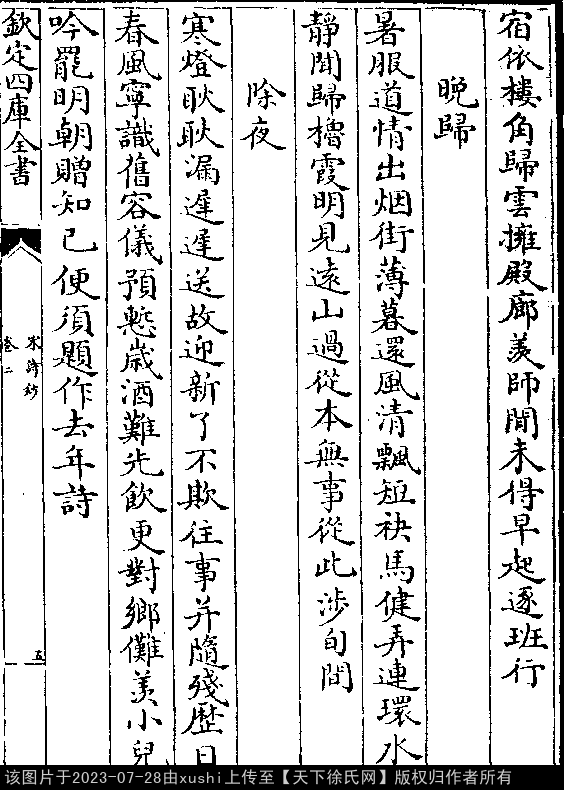 宿依樓角歸雲擁殿廊羨師閒未得早起逐班行
晚歸
暑服道情出烟街薄暮還風清飄短袂馬健弄連環水
靜聞歸櫓霞明見遠山過從本無事從此涉旬間
除夜
寒燈耿耿漏遲遲送故迎新了不欺往事并隨殘歷日
春風寧識舊容儀預慙歲酒難先飲更對鄉儺羨小兒
吟罷明朝贈知己便須題作去年詩
欽定四庫全書
宋詩鈔
卷二
五
该图片于2023-07-28由xushi上传至【天下徐氏网】版权归作者所有